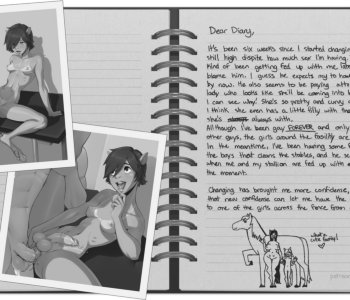 Dear Diary,
It's been six weeks since I started changing
still high dispite how much sex I'm having.
kind of been getting fed up with me,
blame him. I guess he expects my to ha
by now. He also seems to be paying atten
lady who looks like she'll be coming into h
I can see why! She's so pretty and curvy
think. She even has a little filly with tha
she's always with.
Although I've been gay FOREVER and only
other guys, the girls around the facility are
In the meantime, I've been having some f
the boys that cleans the stables, and he se
when me and my stallion are fed up with e
the moment.
Changing has brought me more confidence,
that new confidence can let me have the
to one of the girls across the fence from
what a
cute family!